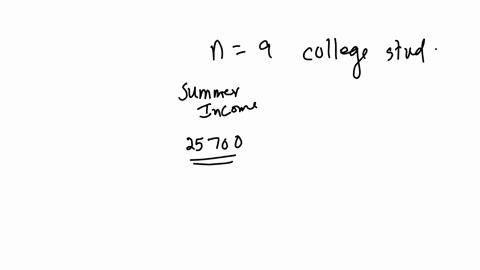 n = 9 college stud.
Summer
Income
25700